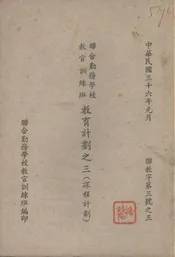 中華民國三十六年元月
聯教字第三號之三
聯合勤務學校
教官訓練班
教育計劃之三(課程計劃)
聯合勤務學校教官訓練班編印